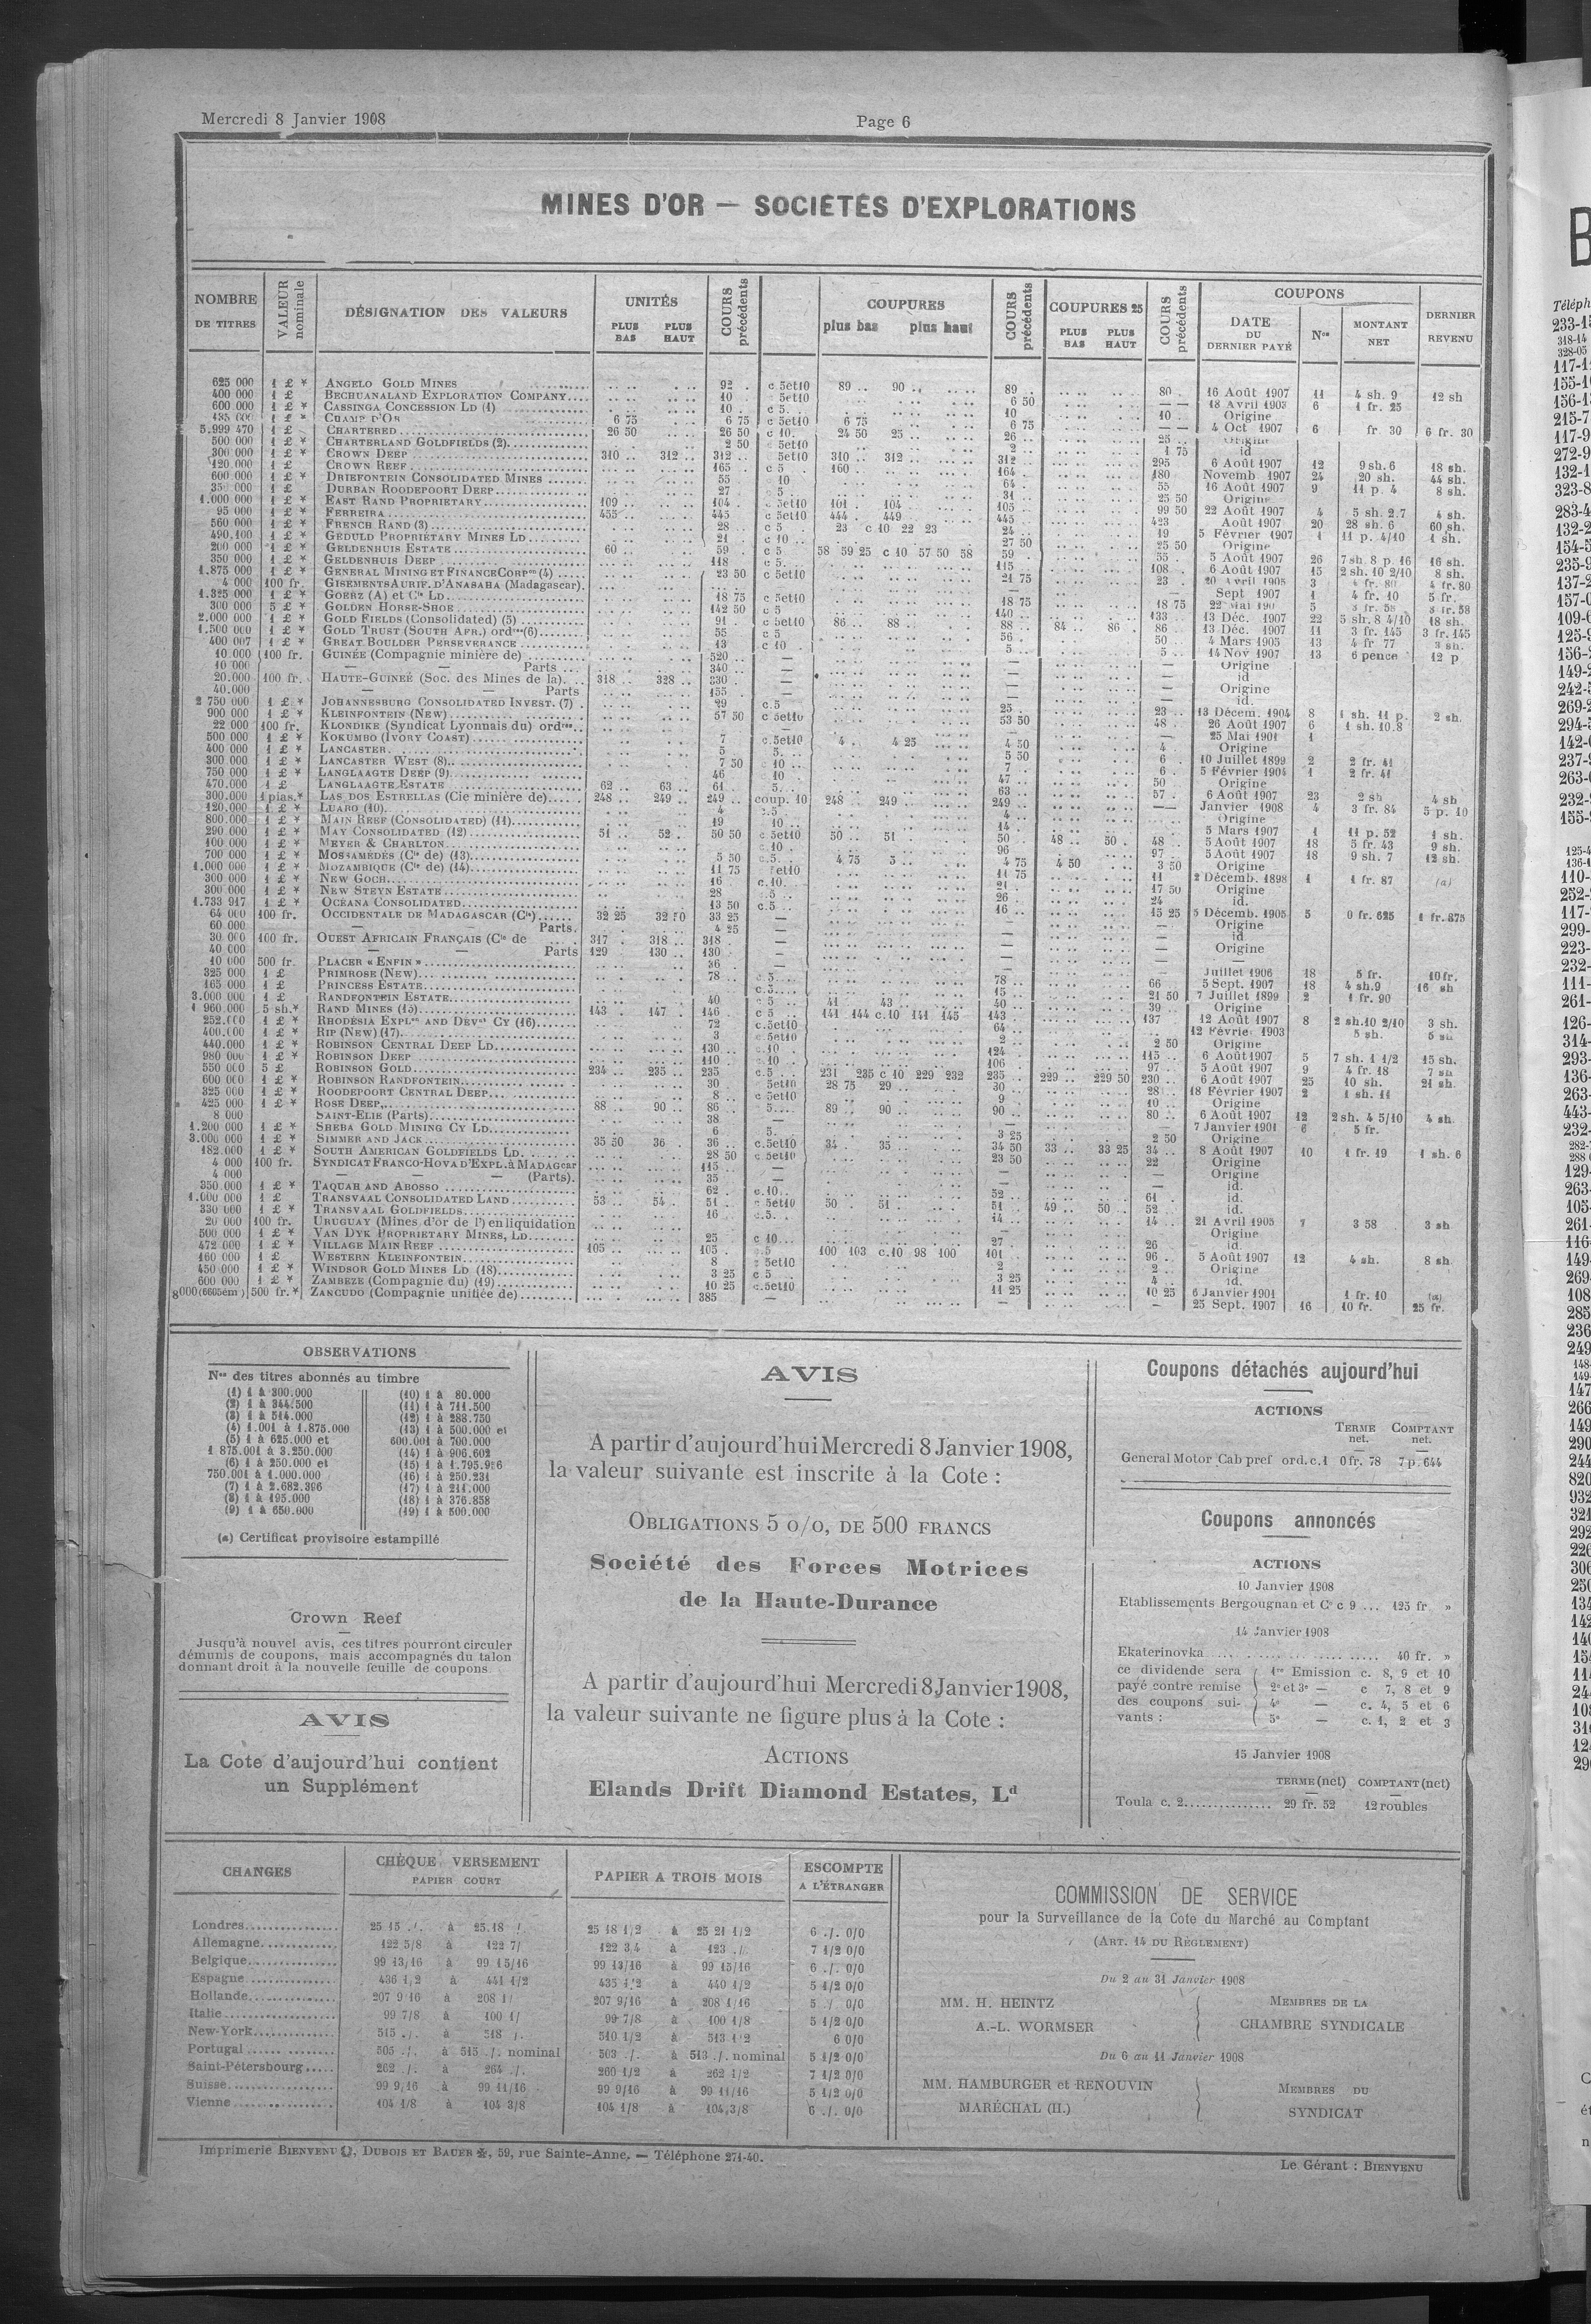 Mercredi 8 Janvier 1908
Page 6
MINES D'OR — SOCIÉTÉS D'EXPLORATIONS
NOMBRE DE TITRES
VALEUR nominale
DÉSIGNATION DES VALEURS
UNITÉS
PLUS BAS PLUS HAUT
COURS précédents
COUPURES
plus bas plus haut
COURS précédents
COUPURES 25
PLUS BAS PLUS HAUT
COURS précédents
COUPONS
DATE DU DERNIER PAYÉ
Nos
MONTANT NET
DERNIER REVENU
625 000 1 £ * ANGELO GOLD MINES 92 c 5et10 89 90 89 80 16 Août 1907 11 4 sh. 9 12 sh
400 000 1 £ BECHUANALAND EXPLORATION COMPANY 10 5et10 6 50 18 Avril 1903 6 1 fr. 25
600.000 1 £ * CASSINGA CONCESSION LD (1) 10 c 5 10 10 Origine
CHAMP D'OR 6 75 6 75 c 5et10 6 75 6 75 4 Oct 1907 6 fr. 30 6 fr. 30
5.999 470 1 £ CHARTERED 26 50 26 50 c 10. 24 50 25 26 25
500 000 1 £ * CHARTERLAND GOLDFIELDS (2) 2 50 5et10 2 1 75 id
300 000 1 £ * CROWN DEEP 310 312 312 5et10 310 312 312 295 6 Août 1907 12 9 sh. 6 18 sh.
120.000 1 £ CROWN REEF 165 c 5 160 164 180 Novemb. 1907 24 20 sh. 44 sh.
600 000 1 £ * DRIEFONTEIN CONSOLIDATED MINES 55 10 64 55 16 Août 1907 9 11 p. 4 8 sh.
DURBAN ROODEPOORT DEEP 27 5 31 25 50 Origine
1.000 000 1 £ * EAST RAND PROPRIETARY 109 104 5et10 101 104 105 99 50 22 Août 1907 4 5 sh. 2.7 4 sh.
95 000 1 £ * FERREIRA 455 445 c 5et10 444 449 445 423 Août 1907 20 28 sh. 6 60 sh.
560 000 1 £ * FRENCH RAND (3) 28 c 5 23 c 10 22 23 24 19 5 Février 1907 1 11 p. 4/10 1 sh.
490.100 1 £ * GEDULD PROPRIETARY MINES LD 21 c 10 27 50 25 50 Origine
200 000 1 £ * GELDENHUIS ESTATE 60 59 c 5 58 59 25 c 10 57 50 58 59 55 5 Août 1907 26 7 sh. 8 p. 16 16 sh.
350 000 1 £ * GELDENHUIS DEEP 118 c 5 115 108 6 Août 1907 15 2 sh. 10 2/10 8 sh.
1.875 000 1 £ * GENERAL MINING ET FINANCE CORPon (4) 23 50 c 5et10 21 75 23 20 Avril 1905 4 fr. 80 4 fr. 80
4 000 100 fr. GISEMENTS AURIF. D'ANASAHA (Madagascar). Sept 1907 1 4 fr. 10 5 fr.
1.325 000 1 £ * GOERZ (A) et Cie LD 18 75 c 5et10 18 75 18 75
300 000 5 £ * GOLDEN HORSE-SHOE 142 50 c 5 140 133
2.000 000 1 £ * GOLD FIELDS (Consolidated) (5) 91 c 5et10 86 88 88 84 86 86 13 Déc. 1907
1.500 000 1 £ * GOLD TRUST (SOUTH AFR.) ord (6) 55 c 5 56 50
GREAT BOULDER PERSEVERANCE 13 c 10 5 5 14 Nov 1907 13 6 pence 12 p
10.000 100 fr. GUINÉE (Compagnie minière de) 520 Origine
10 000 — — Parts 340 id
20.000 100 fr. HAUTE-GUINÉE (Soc. des Mines de la) 318 328 330 Origine
40.000 — — Parts 155 id.
2 750 000 1 £ * JOHANNESBURG CONSOLIDATED INVEST. (7) 29 c.5 25 23 13 Décem. 1904 8 1 sh. 11 p. 2 sh.
900 000 1 £ * KLEINFONTEIN (NEW) 57 50 c 5et10 53 50 48 26 Août 1907 6 1 sh. 10.8
22 000 100 fr. KLONDIKE (Syndicat Lyonnais du) ord 25 Mai 1901 1
500 000 1 £ * KOKUMBO (IVORY COAST) 7 c.5et10 4 4 25 4 50 4 Origine
400 000 1 £ * LANCASTER 5 5 5 50 6 10 Juillet 1899 2 2 fr. 41
300 000 1 £ * LANCASTER WEST (8) 7 50 c 10 7 6 5 Février 1904 1 2 fr. 41
750 000 1 £ * LANGLAAGTE DEEP (9) 46 10 47 50 Origine
470.000 1 £ LANGLAAGTE ESTATE 62 63 61 5 63 57 6 Août 1907 23 2 sh 4 sh
300.000 1 pias.* LAS DOS ESTRELLAS (Cie minière de) 248 249 249 coup. 10 248 249 249 Janvier 1908 4 3 fr. 84 5 p. 10
120.000 1 £ * LUARO (10) 4 c.5 4 Origine
800.000 1 £ * MAIN REEF (CONSOLIDATED) (11) 19 10 14 5 Mars 1907 1 11 p. 52 1 sh.
290 000 1 £ * MAY CONSOLIDATED (12) 51 52 50 50 c 5et10 50 51 50 48 50 48 5 Août 1907 18 5 fr. 43 9 sh.
100 000 1 £ * MEYER & CHARLTON c.10 96 97 5 Août 1907 18 9 sh. 7 12 sh.
700 000 1 £ * MOSSAMÉDÈS (Cie de) (13) 5 50 c.5 4 75 5 4 75 4 50 3 50
1.000 000 1 £ * MOZAMBIQUE (Cie de) (14) 11 75 5et10 11 75 11 2 Décemb. 1898 1 1 fr. 87 (a)
300 000 1 £ * NEW GOCH 16 c.10 21 17 50 Origine
300 000 1 £ * NEW STEYN ESTATE 28 5 26 24 id.
1.733 917 1 £ * OCEANA CONSOLIDATED 13 50 c.5 16 15 25 5 Décemb. 1905 5 0 fr. 625 1 fr. 875
64 000 100 fr. OCCIDENTALE DE MADAGASCAR (Cie) 32 25 32 50 33 25 Origine
60 000 — — Parts. 4 25 id
30 000 100 fr. OUEST AFRICAIN FRANÇAIS (Cie de 317 318 318 Origine
40 000 — — Parts 129 130 130
10 000 500 fr. PLACER « ENFIN » 36
325 000 1 £ PRIMROSE (NEW) 78 c.5 78 66
165 000 1 £ PRINCESS ESTATE c.5 15 21 50 7 Juillet 1899 2 1 fr. 90
3.000 000 1 £ RANDFONTEIN ESTATE 40 c 5 41 43 40 39 Origine
1 960.000 5 sh.* RAND MINES (15) 143 147 146 c 5 141 144 c.10 141 145 143 137 12 Août 1907 8 2 sh.10 2/10 3 sh.
RHODÉSIA EXPLon AND DEVnt CY (16) 72 c.5et10 64 12 Février 1903 5 sh.
400.000 1 £ * RIP (NEW) (17) 3 c.5et10 2 2 50 Origine
440.000 1 £ * ROBINSON CENTRAL DEEP LD 130 c.10 124 115 6 Août 1907 5 7 sh. 1 1/2 15 sh.
980 000 1 £ * ROBINSON DEEP 110 c.10 106 97 5 Août 1907 9 4 fr. 18 7 sh
550 000 5 £ ROBINSON GOLD 234 235 235 c.5 231 235 c 10 229 232 235 229 229 50 230 6 Août 1907 25 10 sh. 21 sh.
600 000 1 £ * ROBINSON RANDFONTEIN 30 5et10 28 75 29 30 28 18 Février 1907 2 1 sh. 11
325 000 1 £ * ROODEPOORT CENTRAL DEEP 8 c 5et10 9 10 Origine
425 000 1 £ * ROSE DEEP 88 90 86 5 89 90 90 80 6 Août 1907 12 2 sh. 4 5/10 4 sh.
8 000 SAINT-ELIE (Parts) 38 7 Janvier 1901 6 5 fr.
1.200 000 1 £ * SHEBA GOLD MINING CY LD 6 5 3 25 2 50 Origine
3.000 000 1 £ * SIMMER AND JACK 35 50 36 36 c.5et10 34 35 34 50 33 33 25 34 8 Août 1907 10 1 fr. 19 1 sh. 6
182.000 1 £ * SOUTH AMERICAN GOLDFIELDS LD. 28 50 c 5et10 23 50 22 Origine
4 000 100 fr. SYNDICAT FRANCO-HOVA D'EXPL. à MADAGcar 115 Origine
4 000 — — (Parts). 35 id.
350.000 1 £ * TAQUAH AND ABOSSO 62 c.10 52 61 id.
1.000 000 1 £ TRANSVAAL CONSOLIDATED LAND 53 54 51 5et10 50 51 51 49 50 52 id.
330 000 1 £ * TRANSVAAL GOLDFIELDS 16 c.5 14 14 21 Avril 1905 7 3 58 3 sh
20 000 100 fr. URUGUAY (Mines d'or de l') en liquidation Origine
500 000 1 £ * VAN DYK PROPRIETARY MINES, LD 25 c 10 27 26 id.
472 000 1 £ * VILLAGE MAIN REEF 105 105 5 100 103 c.10 98 100 101 96 5 Août 1907 12 4 sh. 8 sh
160 000 1 £ WESTERN KLEINFONTEIN 8 5et10 2 2 Origine
450 000 1 £ * WINDSOR GOLD MINES LD (18) 3 25 c 5 3 25 4 id.
600 000 1 £ * ZAMBEZE (Compagnie du) (19) 10 25 c.5et10 11 25 10 25 6 Janvier 1901 1 fr. 10 (a)
8000 (6605ém) 500 fr.* ZANCUDO (Compagnie unifiée de) 385 25 Sept. 1907 16 10 fr. 25 fr.
OBSERVATIONS
Nos des titres abonnés au timbre
(1) 1 à 300.000
(2) 1 à 344.500
(3) 1 à 514.000
(4) 1.001 à 1.875.000
(5) 1 à 625.000 et
1 875.001 à 3.250.000
(6) 1 à 250.000 et
750.001 à 1.000.000
(7) 1 à 2.682.396
(8) 1 à 195.000
(9) 1 à 650.000
(10) 1 à 80.000
(11) 1 à 711.500
(12) 1 à 288.750
(13) 1 à 500.000 et
600.001 à 700.000
(14) 1 à 906.602
(15) 1 à 1.795.956
(16) 1 à 250.231
(17) 1 à 211.000
(18) 1 à 376.858
(19) 1 à 500.000
(a) Certificat provisoire estampillé
Crown Reef
Jusqu'à nouvel avis, ces titres pourront circuler
démunis de coupons, mais accompagnés du talon
donnant droit à la nouvelle feuille de coupons
AVIS
La Cote d'aujourd'hui contient
un Supplément
AVIS
A partir d'aujourd'hui Mercredi 8 Janvier 1908,
la valeur suivante est inscrite à la Cote :
OBLIGATIONS 5 o/o, DE 500 FRANCS
Société des Forces Motrices
de la Haute-Durance
A partir d'aujourd'hui Mercredi 8 Janvier 1908,
la valeur suivante ne figure plus à la Cote :
ACTIONS
Elands Drift Diamond Estates, Ld
Coupons détachés aujourd'hui
ACTIONS
TERME net. COMPTANT net.
General Motor Cab pref ord. c.1 0 fr. 78 7 p. 644
Coupons annoncés
ACTIONS
10 Janvier 1908
Etablissements Bergougnan et Ce c 9 ... 125 fr »
14 Janvier 1908
Ekaterinovka 40 fr. »
ce dividende sera payé contre remise des coupons suivants :
1re Emission c. 8, 9 et 10
2e et 3e — c 7, 8 et 9
4e — c. 4, 5 et 6
5e — c. 1, 2 et 3
15 Janvier 1908
TERME (net) COMPTANT (net)
Toula c. 2 29 fr. 52 12 roubles
CHANGES
CHÈQUE VERSEMENT
PAPIER COURT
PAPIER A TROIS MOIS
ESCOMPTE
A L'ÉTRANGER
Londres 25 15 ./. à 25.18 / 25 18 1/2 à 25 21 1/2 6 ./. 0/0
Allemagne 122 5/8 à 122 7/ 122 3,4 à 123 ./ 7 1/2 0/0
Belgique 99 13/16 à 99 15/16 99 13/16 à 99 15/16 6 ./. 0/0
Espagne 436 1/2 à 441 1/2 435 1/2 à 440 1/2 5 1/2 0/0
Hollande 207 9 16 à 208 1/ 207 9/16 à 208 1/16 5 ./ 0/0
Italie 99 7/8 à 100 1/ 99 7/8 à 100 1/8 5 1/2 0/0
New-York 515 ./. à 518 /. 510 1/2 à 513 1/2 6 0/0
Portugal 505 ./. à 515 ./. nominal 503 ./. à 513 ./. nominal 5 1/2 0/0
Saint-Pétersbourg 262 ./. à 264 ./. 260 1/2 à 262 1/2 7 1/2 0/0
Suisse 99 9/16 à 99 11/16 99 9/16 à 99 11/16 5 1/2 0/0
Vienne 104 1/8 à 104 3/8 104 1/8 à 104,3/8 6 ./. 0/0
COMMISSION DE SERVICE
pour la Surveillance de la Cote du Marché au Comptant
(ART. 14 DU RÈGLEMENT)
Du 2 au 31 Janvier 1908
MM. H. HEINTZ
A.-L. WORMSER
MEMBRES DE LA
CHAMBRE SYNDICALE
Du 6 au 11 Janvier 1908
MM. HAMBURGER et RENOUVIN
MARÉCHAL (H.)
MEMBRES DU
SYNDICAT
Imprimerie BIENVENU, DUBOIS ET BAUER, 59, rue Sainte-Anne. — Téléphone 271-40.
Le Gérant : BIENVENU